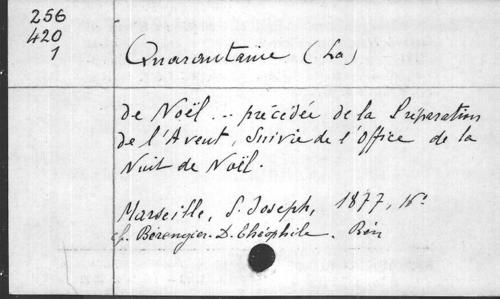 256
420
1
Quarantaine (La)
de Noël... précédée de la Préparation
de l'Avent, suivie de l'Office de la
Nuit de Noël.
Marseille, S. Joseph, 1877, 16°
cf. Bérengier. D. Théophile.